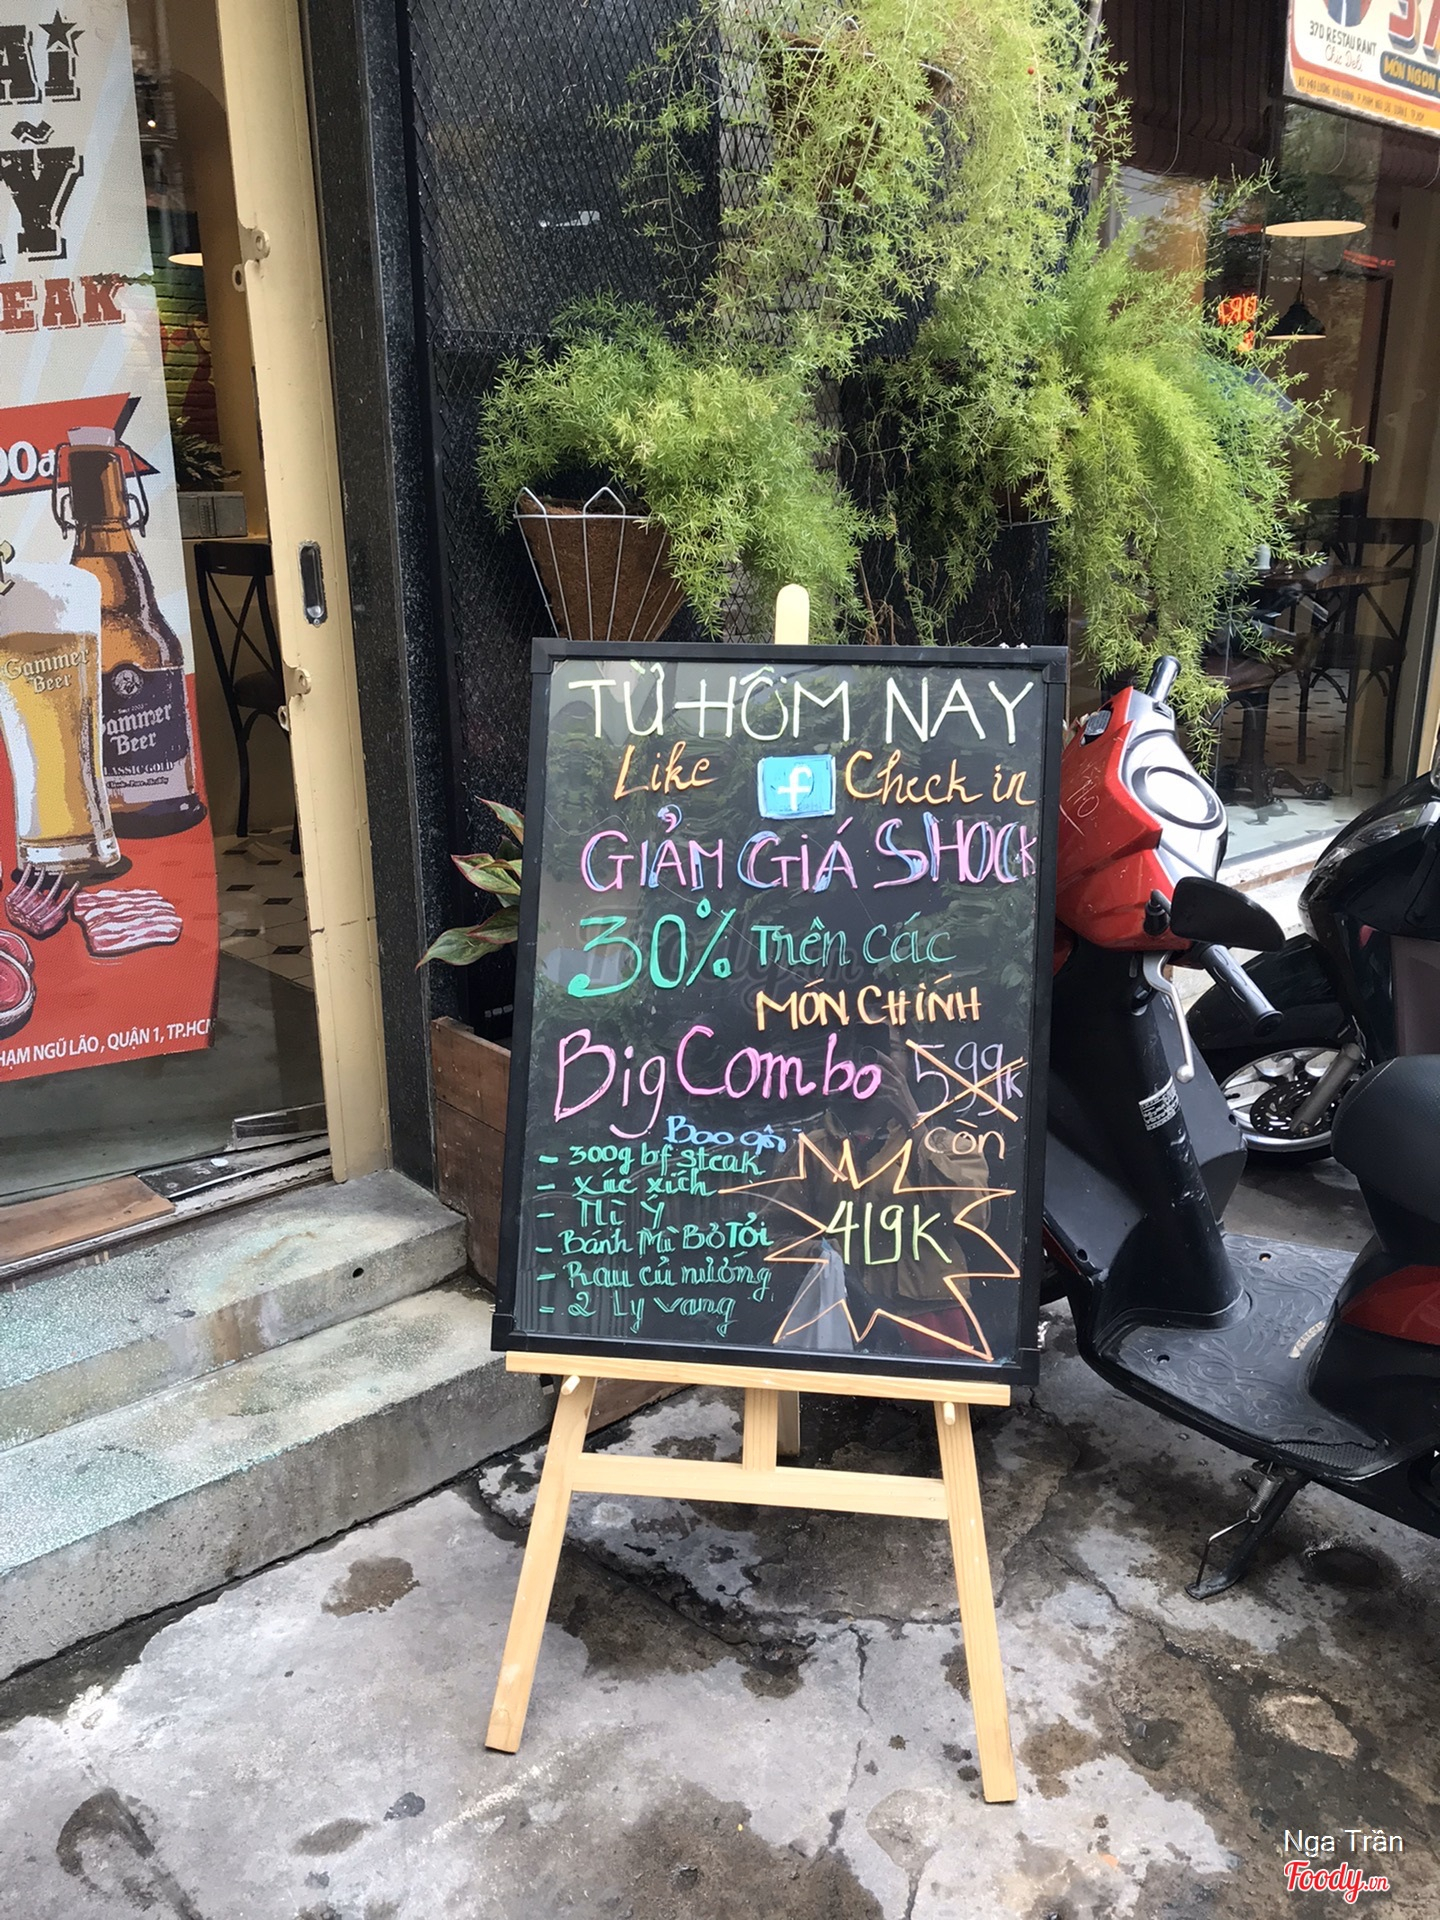 ẠI
Ỹ
EAK
00đ
Gammer
Beer
Gammer
Beer
CLASSIC GOLD
PHẠM NGŨ LÃO, QUẬN 1, TP.HCM
37D RESTAURANT
Chic Deli
MÓN NGON
TỪ HÔM NAY
Like f Check in
GIẢM GIÁ SHOCK
30% Trên các
MÓN CHÍNH
Big Combo 599k
còn
Bao gồm
- 300g bf steak
- xúc xích
- Mì Ý
419K
- Bánh Mì Bơ Tỏi
- Rau củ nướng
- 2 Ly vang
Nga Trần
Foody.vn